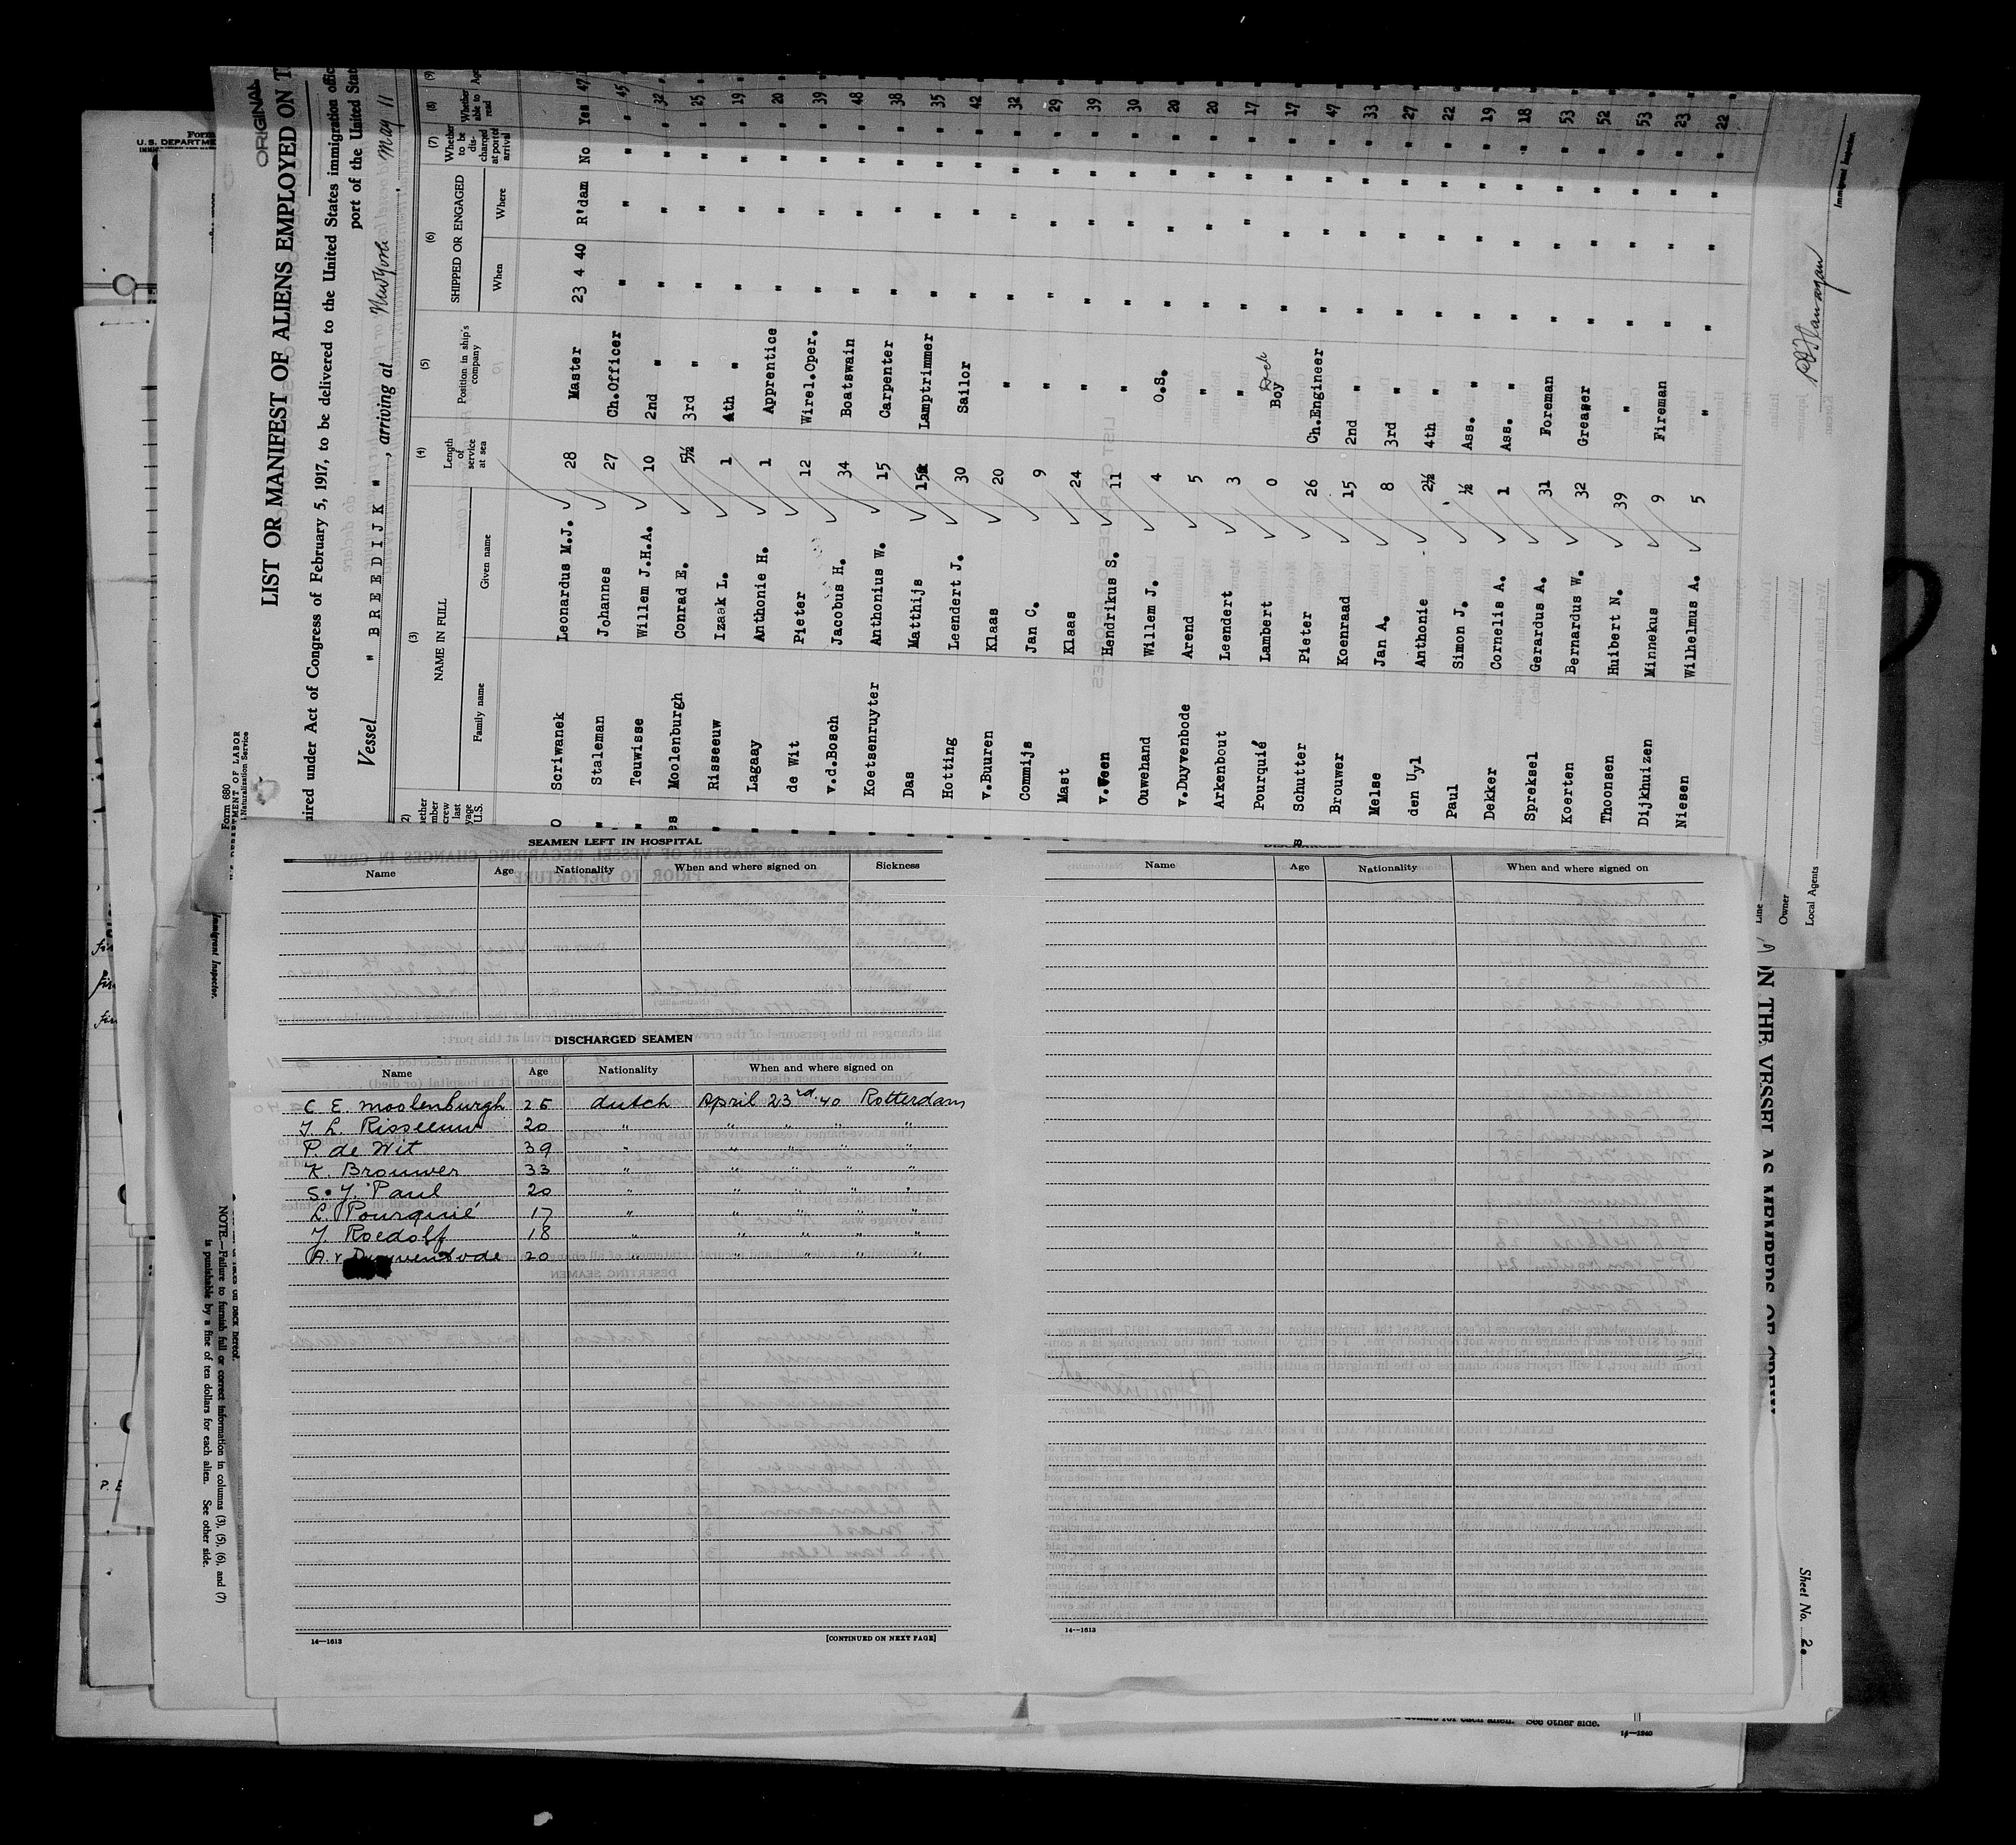 ORIGINAL
LIST OR MANIFEST OF ALIENS EMPLOYED ON T
uired under Act of Congress of February 5, 1917, to be delivered to the United States immigration offic
port of the United Stat
Vessel " BREEDIJK ", arriving at New York, May 11
Form 680
(3) (4) (5) (6) (7) (8) (9)
NAME IN FULL Length of service at sea Position in ship's company SHIPPED OR ENGAGED Whether to be discharged at port of arrival Whether able to read Ag
Family name Given name When Where
Scriwanek Leonardus M.J. 28 Master 23 4 40 R'dam No Yes 47
Staleman Johannes 27 Ch.Officer " " " " 45
Teuwisse Willem J.H.A. 10 2nd " " " " " 32
Moolenburgh Conrad E. 5½ 3rd " " " " " 25
Risseeuw Izaak L. 1 4th " " " " " 19
Lagaay Anthonie H. 1 Apprentice " " " " 20
de Wit Pieter 12 Wirel.Oper. " " " " 39
v.d.Bosch Jacobus H. 34 Boatswain " " " " 48
Koetsenruyter Anthonius W. 15 Carpenter " " " " 38
Das Matthijs 15 Lamptrimmer " " " " 35
Hotting Leendert J. 30 Sailor " " " " 42
v.Buuren Klaas 20 " " " " " 32
Commijs Jan C. 9 " " " " " 29
Mast Klaas 24 " " " " " 39
v.Veen Hendrikus S. 11 " " " " " 30
Ouwehand Willem J. 4 O.S. " " " " 20
v.Duyvenbode Arend 5 " " " " " 20
Arkenbout Leendert 3 " " " " " 17
Pourquié Lambert 0 Deck Boy " " " " 17
Schutter Pieter 26 Ch.Engineer " " " " 47
Brouwer Koenraad 15 2nd " " " " " 33
Melse Jan A. 8 3rd " " " " " 27
den Uyl Anthonie 2½ 4th " " " " " 22
Paul Simon J. ½ Ass. " " " " " 19
Dekker Cornelis A. 1 Ass. " " " " " 18
Spreksel Gerardus A. 31 Foreman " " " " 53
Koerten Bernardus W. 32 Greaser " " " " 52
Thoonsen Huibert N. 39 " " " " " 53
Dijkhuizen Minnekus 9 Fireman " " " " 23
Niesen Wilhelmus A. 5 " " " " " 22
Immigrant Inspector.
Line
Owner
Local Agents
SEAMEN LEFT IN HOSPITAL
Name Age Nationality When and where signed on Sickness
DISCHARGED SEAMEN
Name Age Nationality When and where signed on
C E. Moolenburgh 25 dutch April 23rd 40 Rotterdam
J. L. Risseeuw 20 " " " " "
P. de Wit 39 " " " " "
K. Brouwer 33 " " " " "
S. J. Paul 20 " " " " "
L. Pourquié 17 " " " " "
J. Roedolf 18 " " " " "
A. v Duyvenbode 20 " " " " "
14—1613 [CONTINUED ON NEXT PAGE]
Name Age Nationality When and where signed on
14—1613
NOTE.—Failure to furnish full or correct information in columns (3), (5), (6), and (7)
is punishable by a fine of ten dollars for each alien. See other side.
ON THE VESSEL AS MEMBERS OF CREW
Sheet No. 2.
See other side.
14—1240